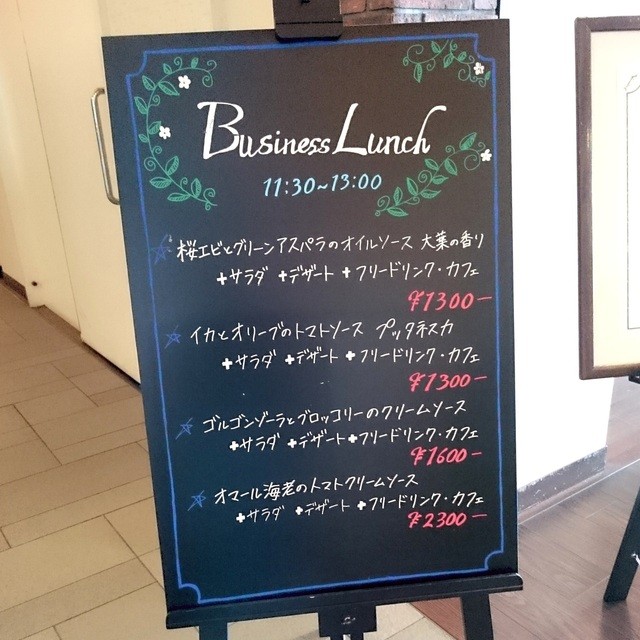 Business Lunch
11:30~13:00
☆桜エビとグリーンアスパラのオイルソース 大葉の香り
+サラダ +デザート +フリードリンク・カフェ
¥1300-
☆イカとオリーブのトマトソース プッタネスカ
+サラダ +デザート +フリードリンク・カフェ
¥1300-
☆ゴルゴンゾーラとブロッコリーのクリームソース
+サラダ +デザート +フリードリンク・カフェ
¥1600-
☆オマール海老のトマトクリームソース
+サラダ +デザート +フリードリンク・カフェ
¥2300-